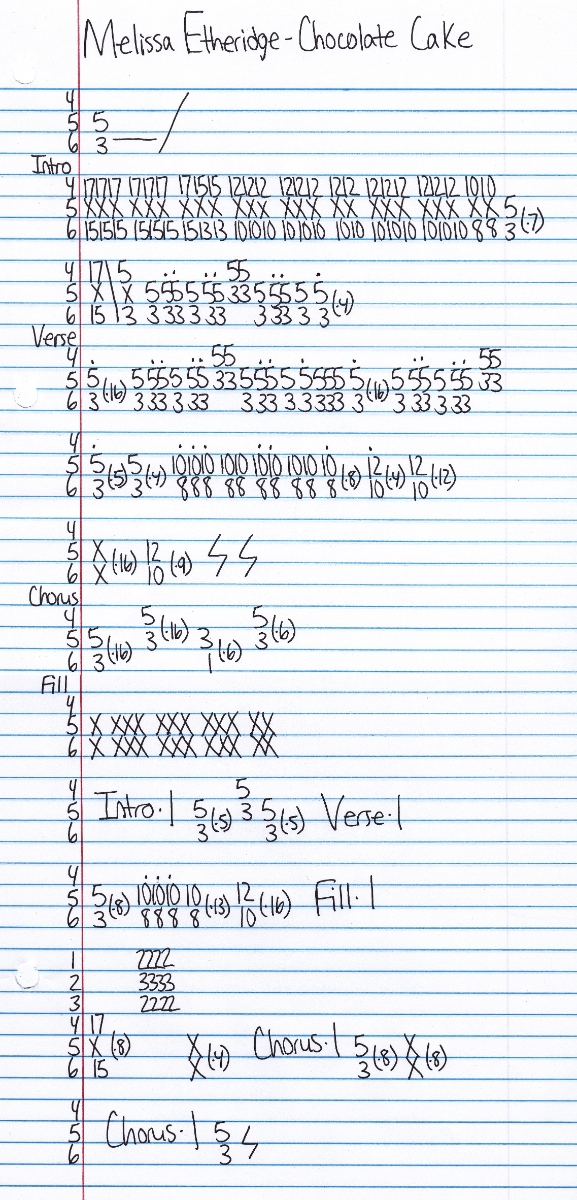 Melissa Etheridge - Chocolate Cake
4
5 5
6 3
Intro
4 171717 171717 171515 121212 121212 1212 121212 121212 1010
5 XXX XXX XXX XXX XXX XX XXX XXX XX 5
6 151515 151515 151313 101010 101010 1010 101010 101010 88 3 (·7)
4 17 5 55
5 X X 5 55 5 55 33 5 55 5 5 (·4)
6 15 3 3 33 3 33 3 33 3 3
Verse
4 55 55
5 5 (·16) 5 55 5 55 33 5 55 5 5 555 5 (·16) 5 55 5 55 33
6 3 3 33 3 33 3 33 3 3 333 3 3 33 3 33
4
5 5 (·5) 5 (·4) 101010 1010 1010 1010 10 (·8) 12 (·4) 12 (·12)
6 3 3 888 88 88 88 8 10 10
4
5 X (·16) 12 (·9)
6 X 10
Chorus
4 5 5
5 5 (·16) 3 (·16) 3 (·6) 3 (·6)
6 3 1
Fill
4
5 X XXX XXX XXX XX
6 X XXX XXX XXX XX
4 5
5 Intro·1 5 (·5) 3 5 (·5) Verse·1
6 3 3
4
5 5 (·8) 101010 10 (·13) 12 (·16) Fill·1
6 3 888 8 10
1 2222
2 3333
3 2222
4 17
5 X (·8) X (·4) Chorus·1 5 (·8) X (·8)
6 15 X 3 X
4
5 Chorus·1 5
6 3